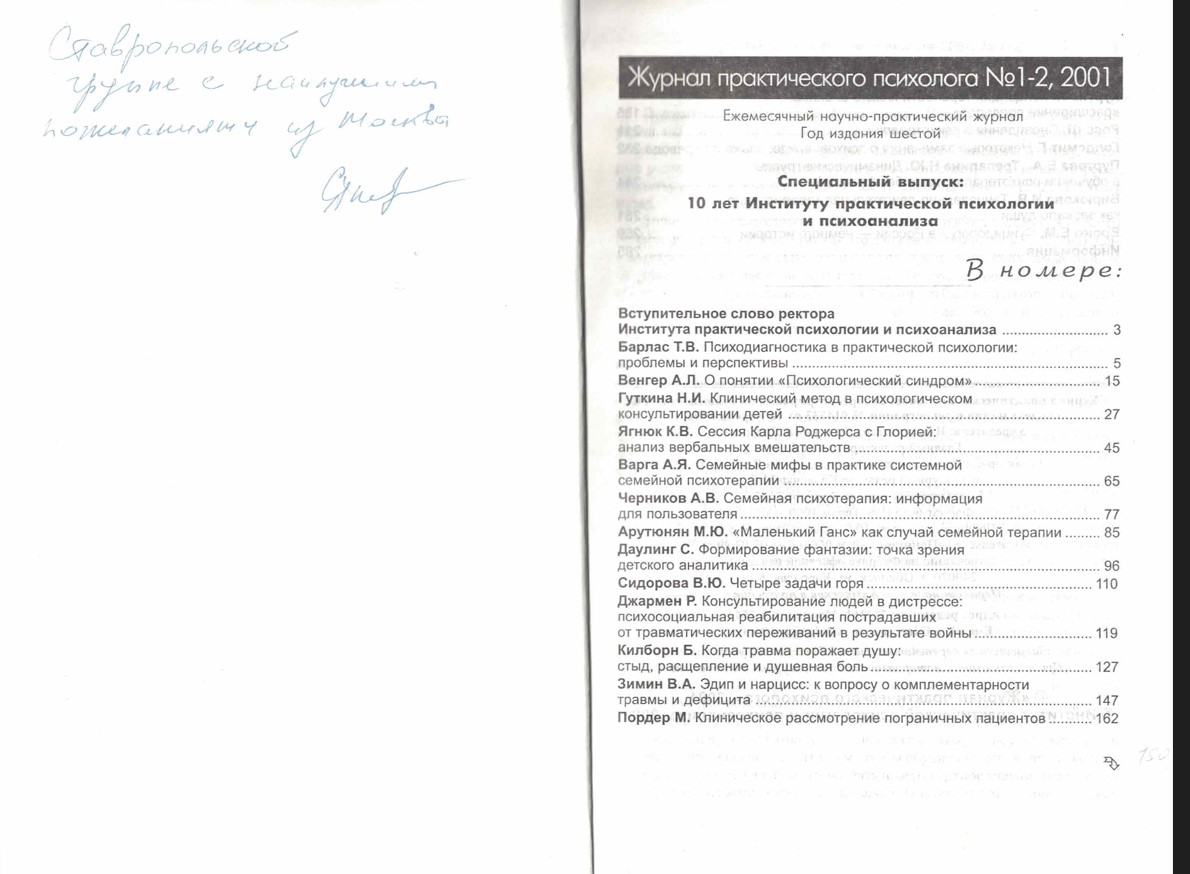 Ставропольской
группе с наилучшими
пожеланиями из Москвы
Журнал практического психолога №1-2, 2001
Ежемесячный научно-практический журнал
Год издания шестой
Специальный выпуск:
10 лет Институту практической психологии
и психоанализа
В номере:
Вступительное слово ректора
Института практической психологии и психоанализа ........................ 3
Барлас Т.В. Психодиагностика в практической психологии:
проблемы и перспективы ........................ 5
Венгер А.Л. О понятии «Психологический синдром» ........................ 15
Гуткина Н.И. Клинический метод в психологическом
консультировании детей ........................ 27
Ягнюк К.В. Сессия Карла Роджерса с Глорией:
анализ вербальных вмешательств ........................ 45
Варга А.Я. Семейные мифы в практике системной
семейной психотерапии ........................ 65
Черников А.В. Семейная психотерапия: информация
для пользователя ........................ 77
Арутюнян М.Ю. «Маленький Ганс» как случай семейной терапии ......... 85
Даулинг С. Формирование фантазии: точка зрения
детского аналитика ........................ 96
Сидорова В.Ю. Четыре задачи горя ........................ 110
Джармен Р. Консультирование людей в дистрессе:
психосоциальная реабилитация пострадавших
от травматических переживаний в результате войны ........................ 119
Килборн Б. Когда травма поражает душу:
стыд, расщепление и душевная боль ........................ 127
Зимин В.А. Эдип и нарцисс: к вопросу о комплементарности
травмы и дефицита ........................ 147
Пордер М. Клиническое рассмотрение пограничных пациентов ........... 162
150